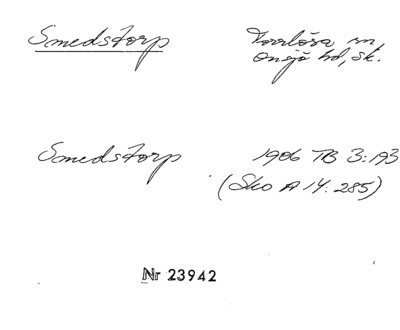 Smedstorp
Torrlösa sn
Onsjö hd, Sk.
Smedstorp 1906 TB 3:193
(Sko A 14:285)
Nr 23942